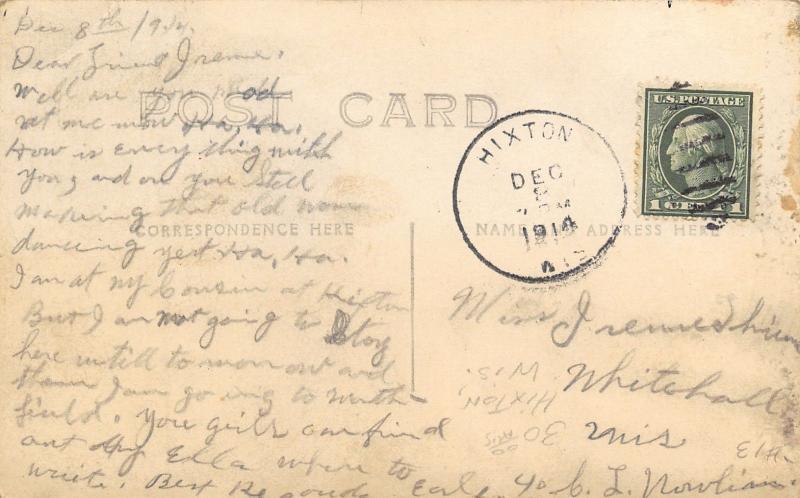 Dec 8th /914.
Dear friend Irene.
Well are you mad
at me now Ha, Ha.
How is every thing with
you, and are you still
making that old
dancing yest Ha, Ha.
I am at my Cousin at Hixton
But I am not going to Stay
here untill to morrow and
then I am going to
field. You girls can find
out by Ella where to
write. Best Re
Earl
POST CARD
CORRESPONDENCE HERE
NAME AND ADDRESS HERE
HIXTON
DEC
8
1914
WIS
U.S. POSTAGE
1 CENT 1
Miss Irene
Whitehall
Wis
HIXTON,
WIS.
30
℅ C. L.